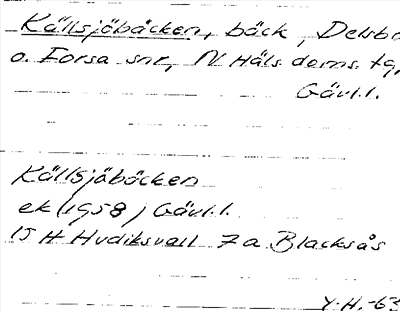 Källsjöbäcken, bäck, Delsbo
o. Forsa snr, N Häls. doms. tg,
Gävl.l.
Källsjöbäcken
ek (1958) Gävl.l.
15 H Hudiksvall 7a Blacksås
Y.H.-63